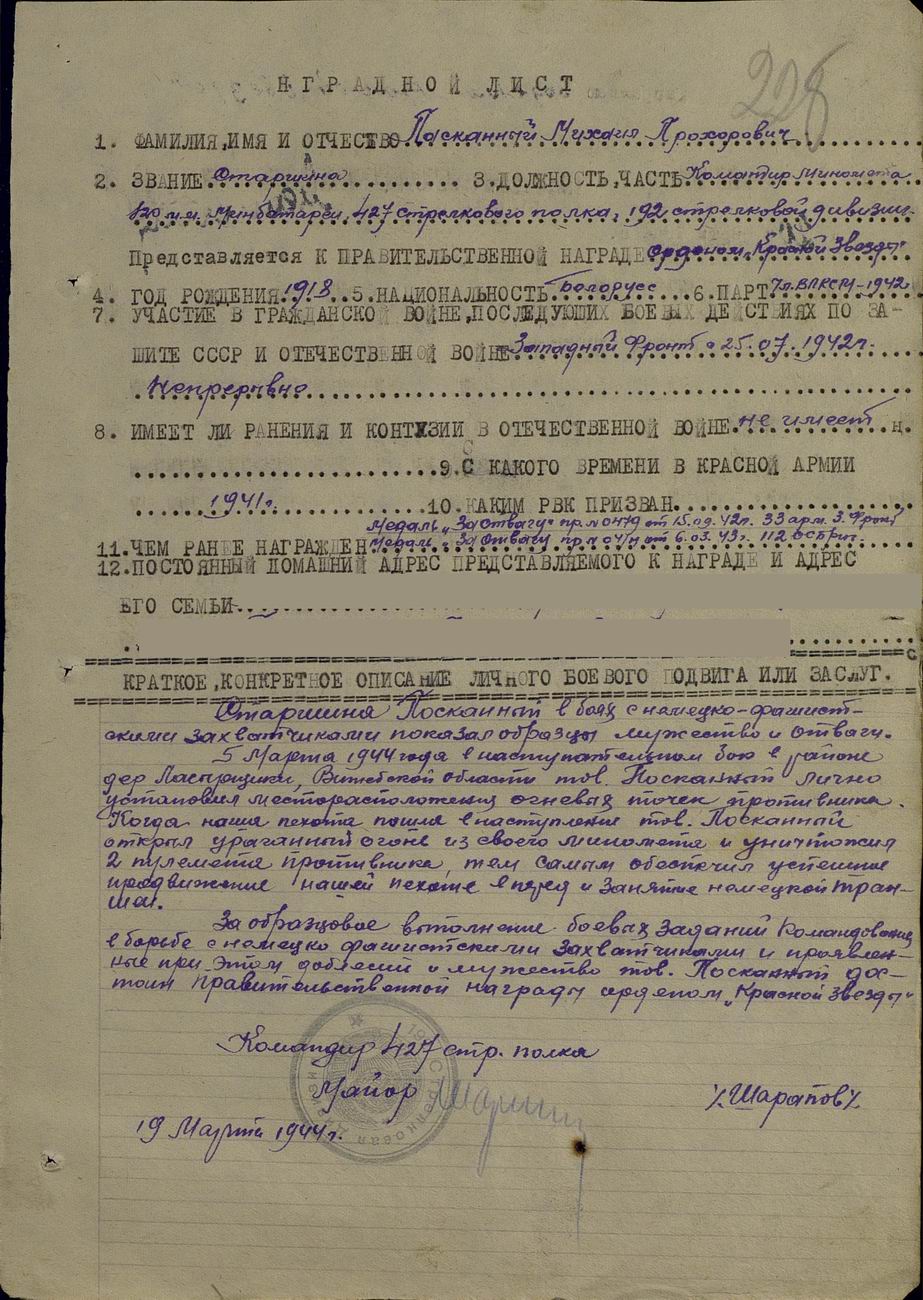 228
НГРАДНОЙ ЛИСТ
1. ФАМИЛИЯ,ИМЯ И ОТЧЕСТВО Посканный Михаил Прохорович
2. ЗВАНИЕ Старшина 3.ДОЛЖНОСТЬ,ЧАСТЬ Командир миномета
120 м.м. минбатареи, 427 стрелкового полка, 192 стрелковой дивизии
Представляется К ПРАВИТЕЛЬСТВЕННОЙ НАГРАДЕ орденом „Красной Звезды"
4. ГОД РОЖДЕНИЯ 1918 5.НАЦИОНАЛЬНОСТЬ Белорусс 6.ПАРТ Чл.ВЛКСМ-1942
7. УЧАСТИЕ В ГРАЖДАНСКОЙ ВОЙНЕ,ПОСЛЕДУЮШИХ БОЕВЫХ ДЕЙСТВИЯХ ПО ЗА-
ШИТЕ СССР И ОТЕЧЕСТВЕННОЙ ВОЙНЕ Западный Фронт с 25.07.1942г.
Непрерывно
8. ИМЕЕТ ЛИ РАНЕНИЯ И КОНТУЗИИ В ОТЕЧЕСТВЕННОЙ ВОЙНЕ не имеет
9.С КАКОГО ВРЕМЕНИ В КРАСНОЙ АРМИИ
1941г. 10.КАКИМ РВК ПРИЗВАН
Медаль „За отвагу" пр.№0479 от 15.09.42г. 33 арм. З.Фронт
11.ЧЕМ РАНЕЕ НАГРАЖДЕН Медаль „За отвагу" пр.№04/н от 6.03.43г. 112 ОСБриг.
12.ПОСТОЯННЫЙ ДОМАШНИЙ АДРЕС ПРЕДСТАВЛЯЕМОГО К НАГРАДЕ И АДРЕС
ЕГО СЕМЬИ
КРАТКОЕ,КОНКРЕТНОЕ ОПИСАНИЕ ЛИЧНОГО БОЕВОГО ПОДВИГА ИЛИ ЗАСЛУГ.
Старшина Посканный в боях с немецко-фашист-
скими захватчиками показал образцы мужество и отваги.
5 Марта 1944 года в наступательном бою в районе
дер , Витебской области тов Посканный лично
установил месторасположения огневых точек противника.
Когда наша пехота пошла в наступление тов. Посканный
открыл ураганный огонь из своего миномета и уничтожил
2 пулемета противника, тем самым обеспечил успешное
продвижение нашей пехоте вперед и занятие немецкой тран-
шеи.
За образцовое выполнение боевых заданий Командования
в борьбе с немецко фашистскими захватчиками и проявлен-
ные при этом доблесть и мужество тов. Посканный дос-
тоин правительственной награды орденом „Красной Звезды"
Командир 427 стр. полка
Майор /Шарапов/
19 Марта 1944г.